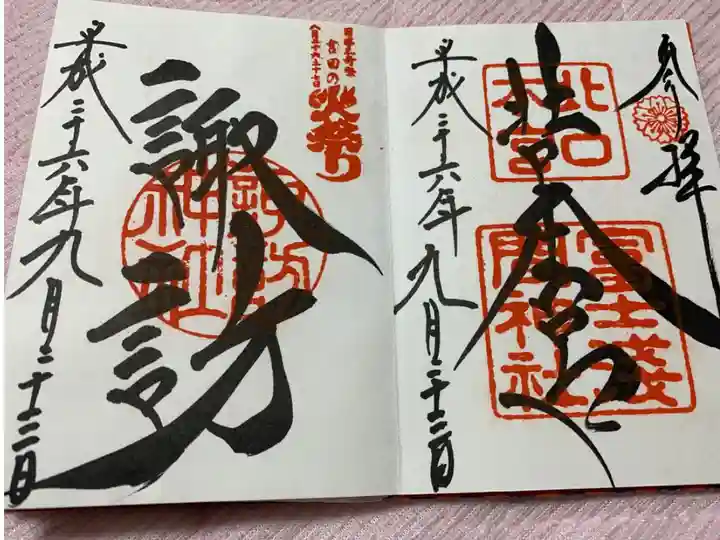 奉拝
北口
本宮
冨士浅
間神社
平成二十六年九月二十二日
日本三奇祭
吉田の
火祭り
八月二十六二十七日
諏訪
諏訪
神社
平成二十六年九月二十二日